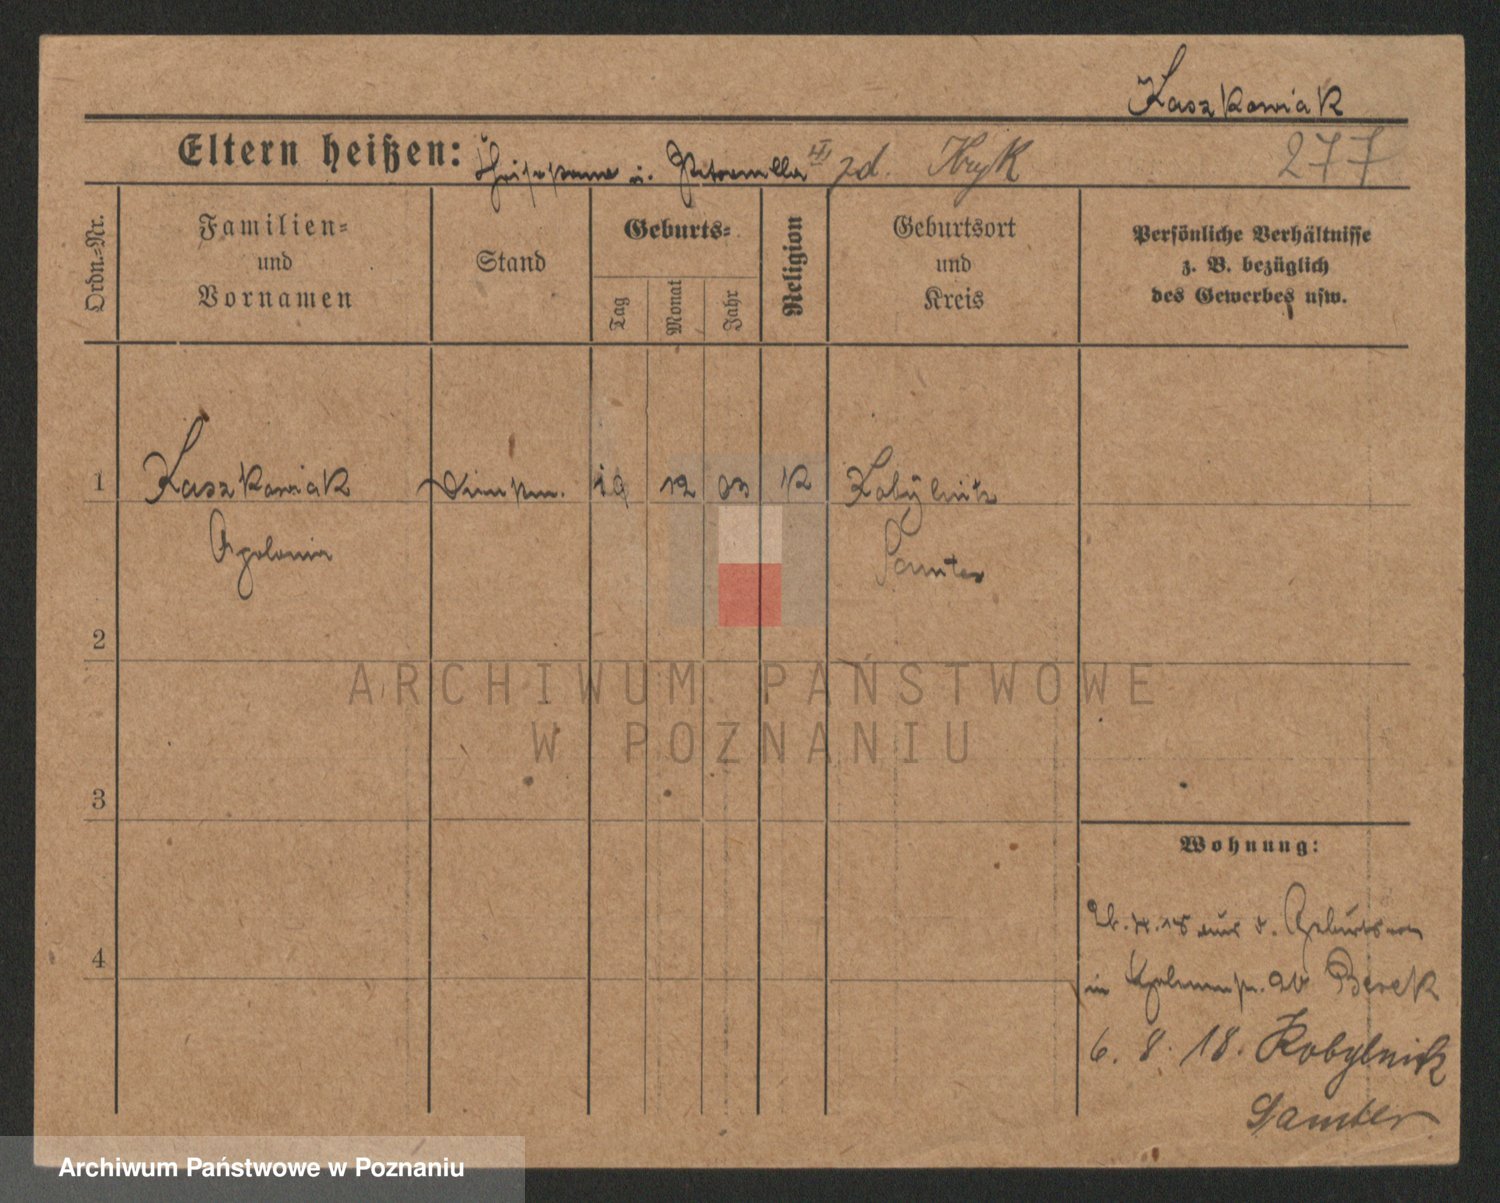 Kaszkowiak
Eltern heißen: u. Petronella zd. Kryk 277
Ordn.-Nr.
Familien-
und
Vornamen
Stand
Geburts-
Tag
Monat
Jahr
Religion
Geburtsort
und
Kreis
Persönliche Verhältnisse
z. B. bezüglich
des Gewerbes usw.
1 Kaszkowiak 19 12 03 K Kobylnik
Apolonia Samter
2
ARCHIWUM PAŃSTWOWE
W POZNANIU
3
Wohnung:
aus d. Geburtsort
4
in bei Berek
6. 8. 18. Kobylnik
Samter
Archiwum Państwowe w Poznaniu